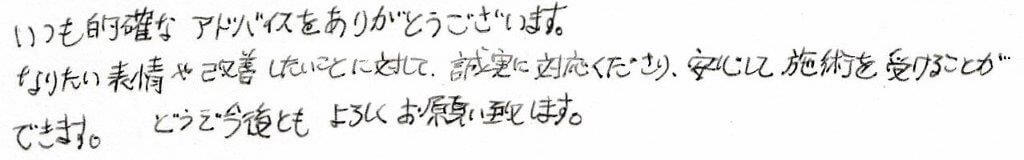 いつも的確な アドバイスをありがとうございます。
なりたい表情や改善したいことに対して、誠実に対応くださり、安心して施術を受けることが
できます。 どうぞ今後とも よろしくお願い致します。